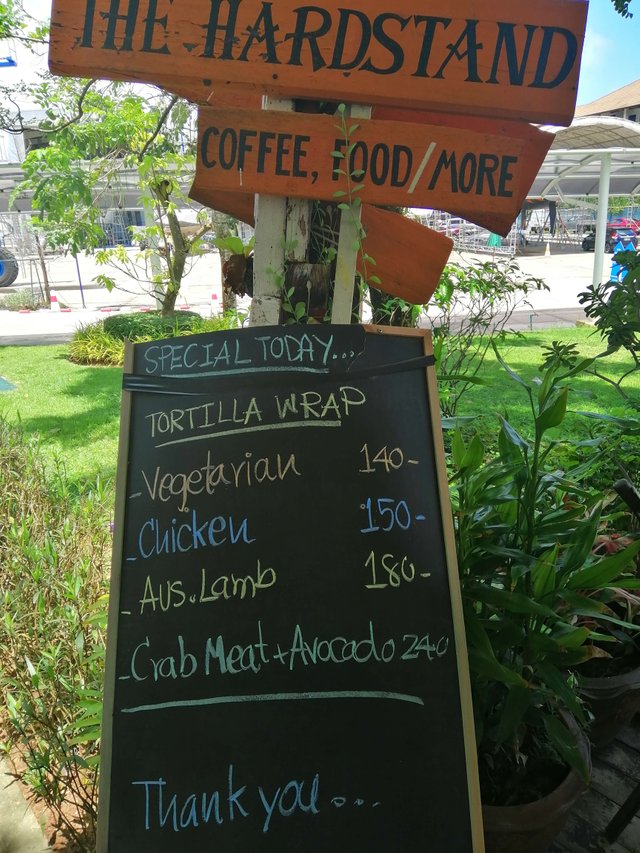 THE HARDSTAND
COFFEE, FOOD/MORE
SPECIAL TODAY...
TORTILLA WRAP
-Vegetarian 140-
-Chicken 150-
-Aus.Lamb 180-
-Crab Meat+Avocado 240
Thank you...